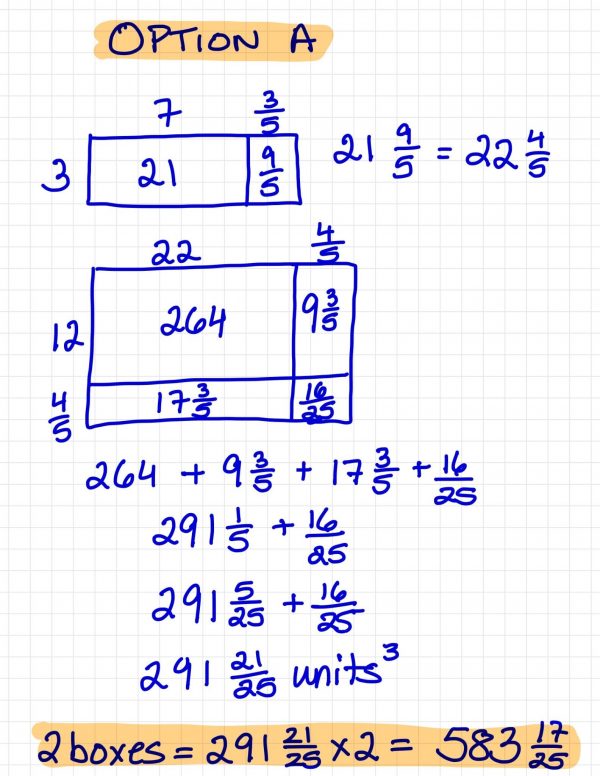 OPTION A
7 3/5
3 21 9/5 21 9/5 = 22 4/5
22 4/5
12 264 9 3/5
4/5 17 3/5 16/25
264 + 9 3/5 + 17 3/5 + 16/25
291 1/5 + 16/25
291 5/25 + 16/25
291 21/25 units³
2 boxes = 291 21/25 x 2 = 583 17/25